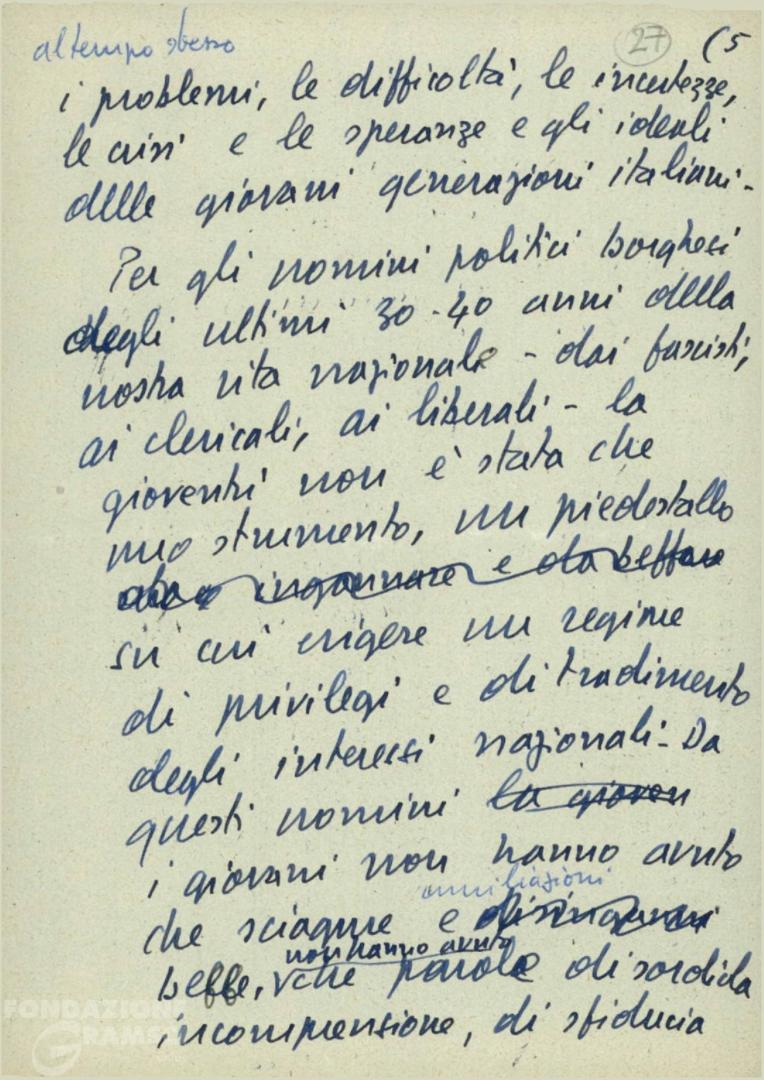 al tempo stesso
27 (5
i problemi, le difficoltà, le incertezze,
le crisi e le speranze e gli ideali
delle giovani generazioni italiani.
Per gli uomini politici borghesi
degli ultimi 30-40 anni della
nostra vita nazionale - dai fascisti,
ai clericali, ai liberali - la
gioventù non è stata che
uno strumento, un piedestallo
da ingannare e da beffare
su cui erigere un regime
di privilegi e di tradimento
degli interessi nazionali. Da
questi uomini la gioven
i giovani non hanno avuto
umiliazioni
che sciagure e disinganni
non hanno avuto
beffe, che parole di sordida
incomprensione, di sfiducia
FONDAZIONE
GRAMSCI